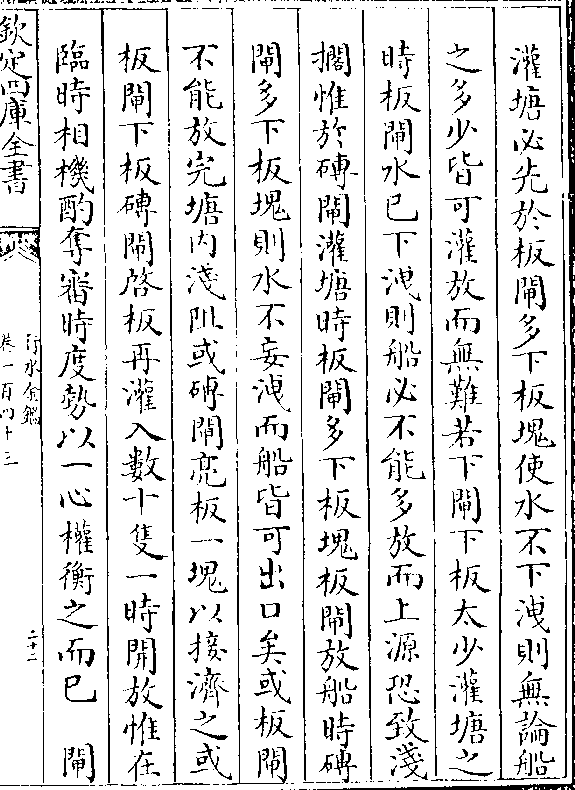 灌塘必先於板閘多下板塊使水不下洩則無論船
之多少皆可灌放而無難若下閘下板太少灌塘之
時板閘水已下洩則船必不能多放而上源恐致淺
擱惟於磚閘灌塘時板閘多下板塊板閘放船時磚
閘多下板塊則水不妄洩而船皆可出口矣或板閘
不能放完塘内淺阻或磚閘亮板一塊以接濟之或
板閘下板磚閘啓板再灌入數十隻一時開放惟在
臨時相機酌奪審時度勢以一心權衡之而已　閘
欽定四庫全書
行水金鑑
卷一百四十三
二十二